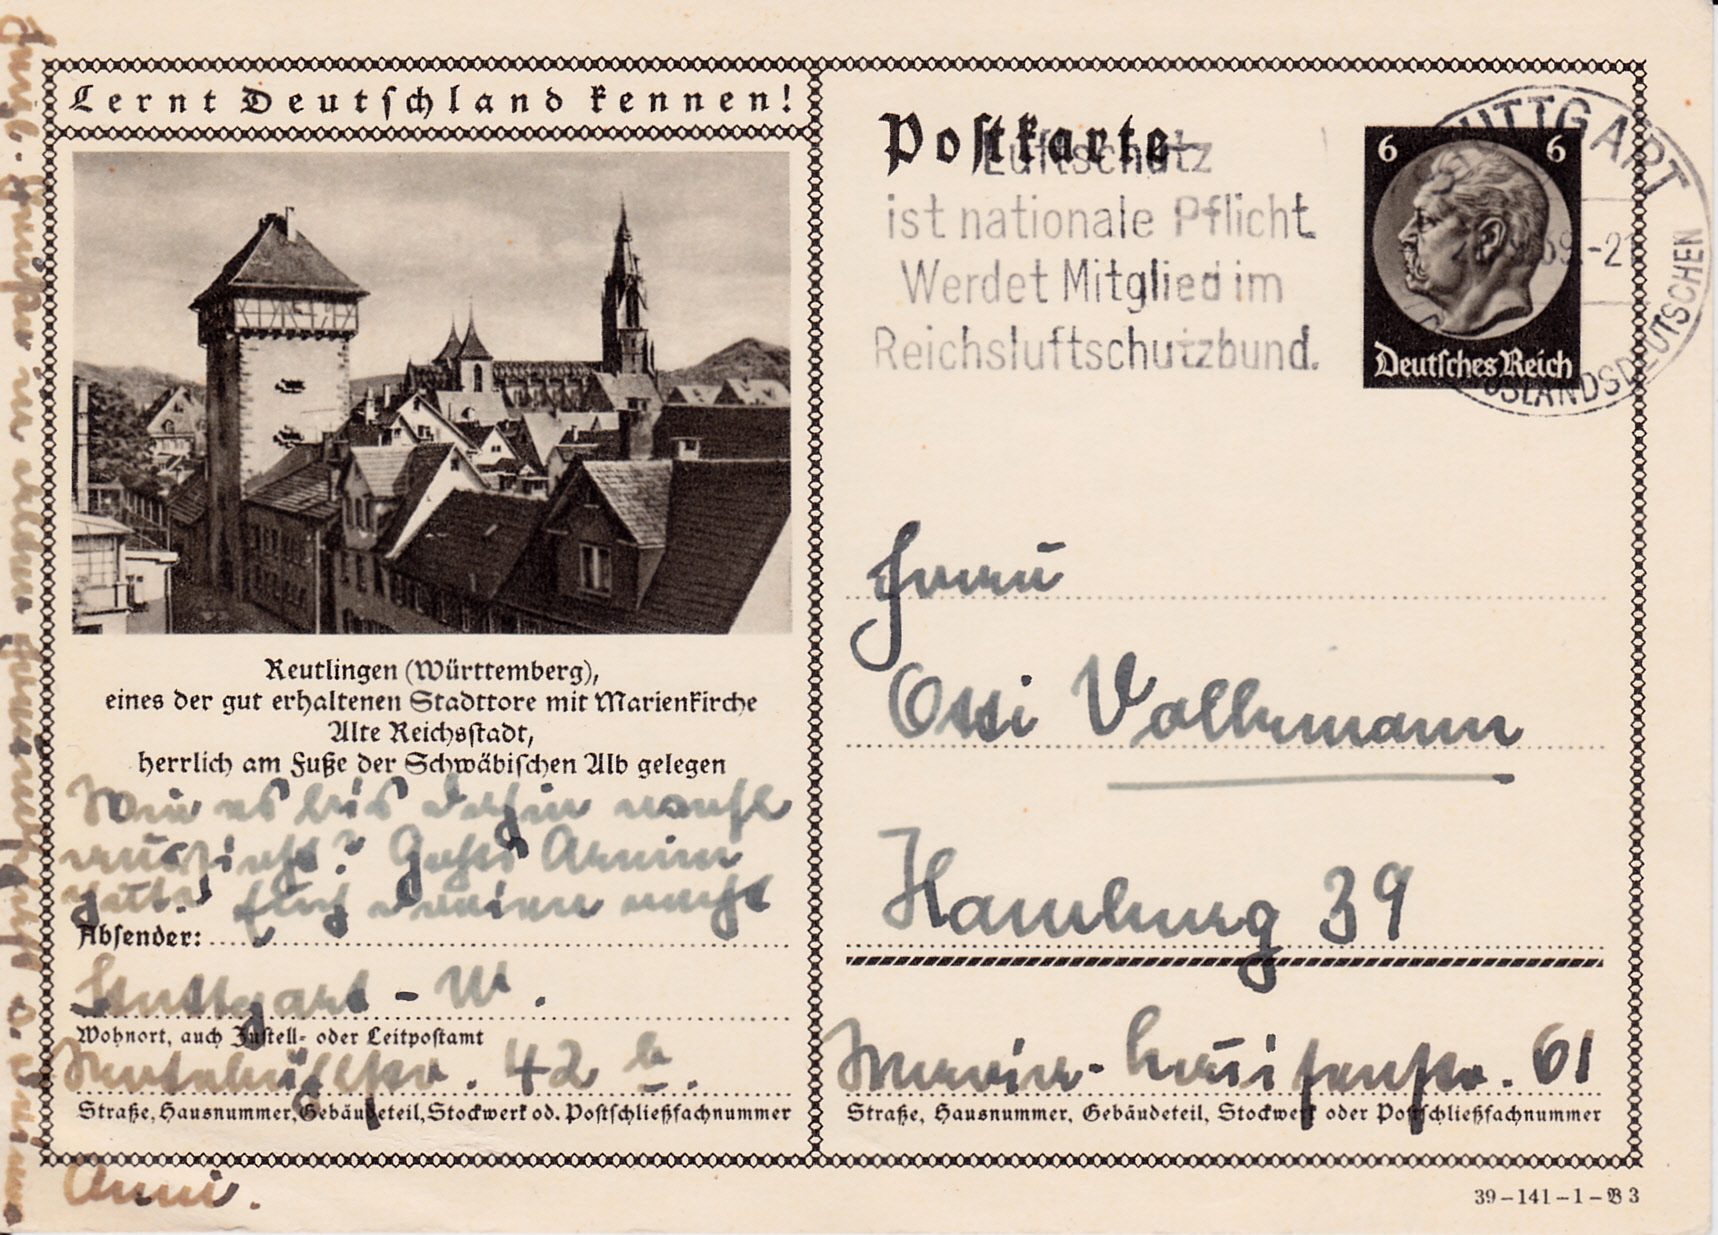 Lernt Deutschland kennen!
Reutlingen (Württemberg),
eines der gut erhaltenen Stadttore mit Marienkirche
Alte Reichsstadt,
herrlich am Fuße der Schwäbischen Alb gelegen
Wie es bis dahin wohl
aussieht? Gehts Armin
gut? Euch
Absender:
Stuttgart-W.
Wohnort, auch Zustell- oder Leitpostamt
42 b.
Straße, Hausnummer, Gebäudeteil, Stockwerk od. Postschließfachnummer
Anni.
Postkarte
Luftschutz
ist nationale Pflicht
Werdet Mitglied im
Reichsluftschutzbund.
6 6
Deutsches Reich
STUTTGART
AUSLANDSDEUTSCHEN
Frau
Ossi Volkmann
Hamburg 39
Maria-Louisenstr. 61
Straße, Hausnummer, Gebäudeteil, Stockwerk oder Postschließfachnummer
39-141-1-B 3